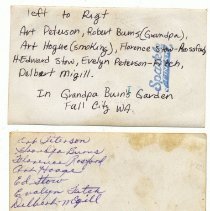 left to Right
Art Peterson, Robert Burns (Grandpa),
Art Hogue (smoking), Florence Stow-Rossford,
H-Edward Stow, Evelyn Peterson-
Delbert Migill.
In Grandpa Burns Garden
Fall City WA.
Art Peterson
Grandpa Burns
Florence Rossford
Art Hogue
Ed Stow
Evelyn
Delbert Migill